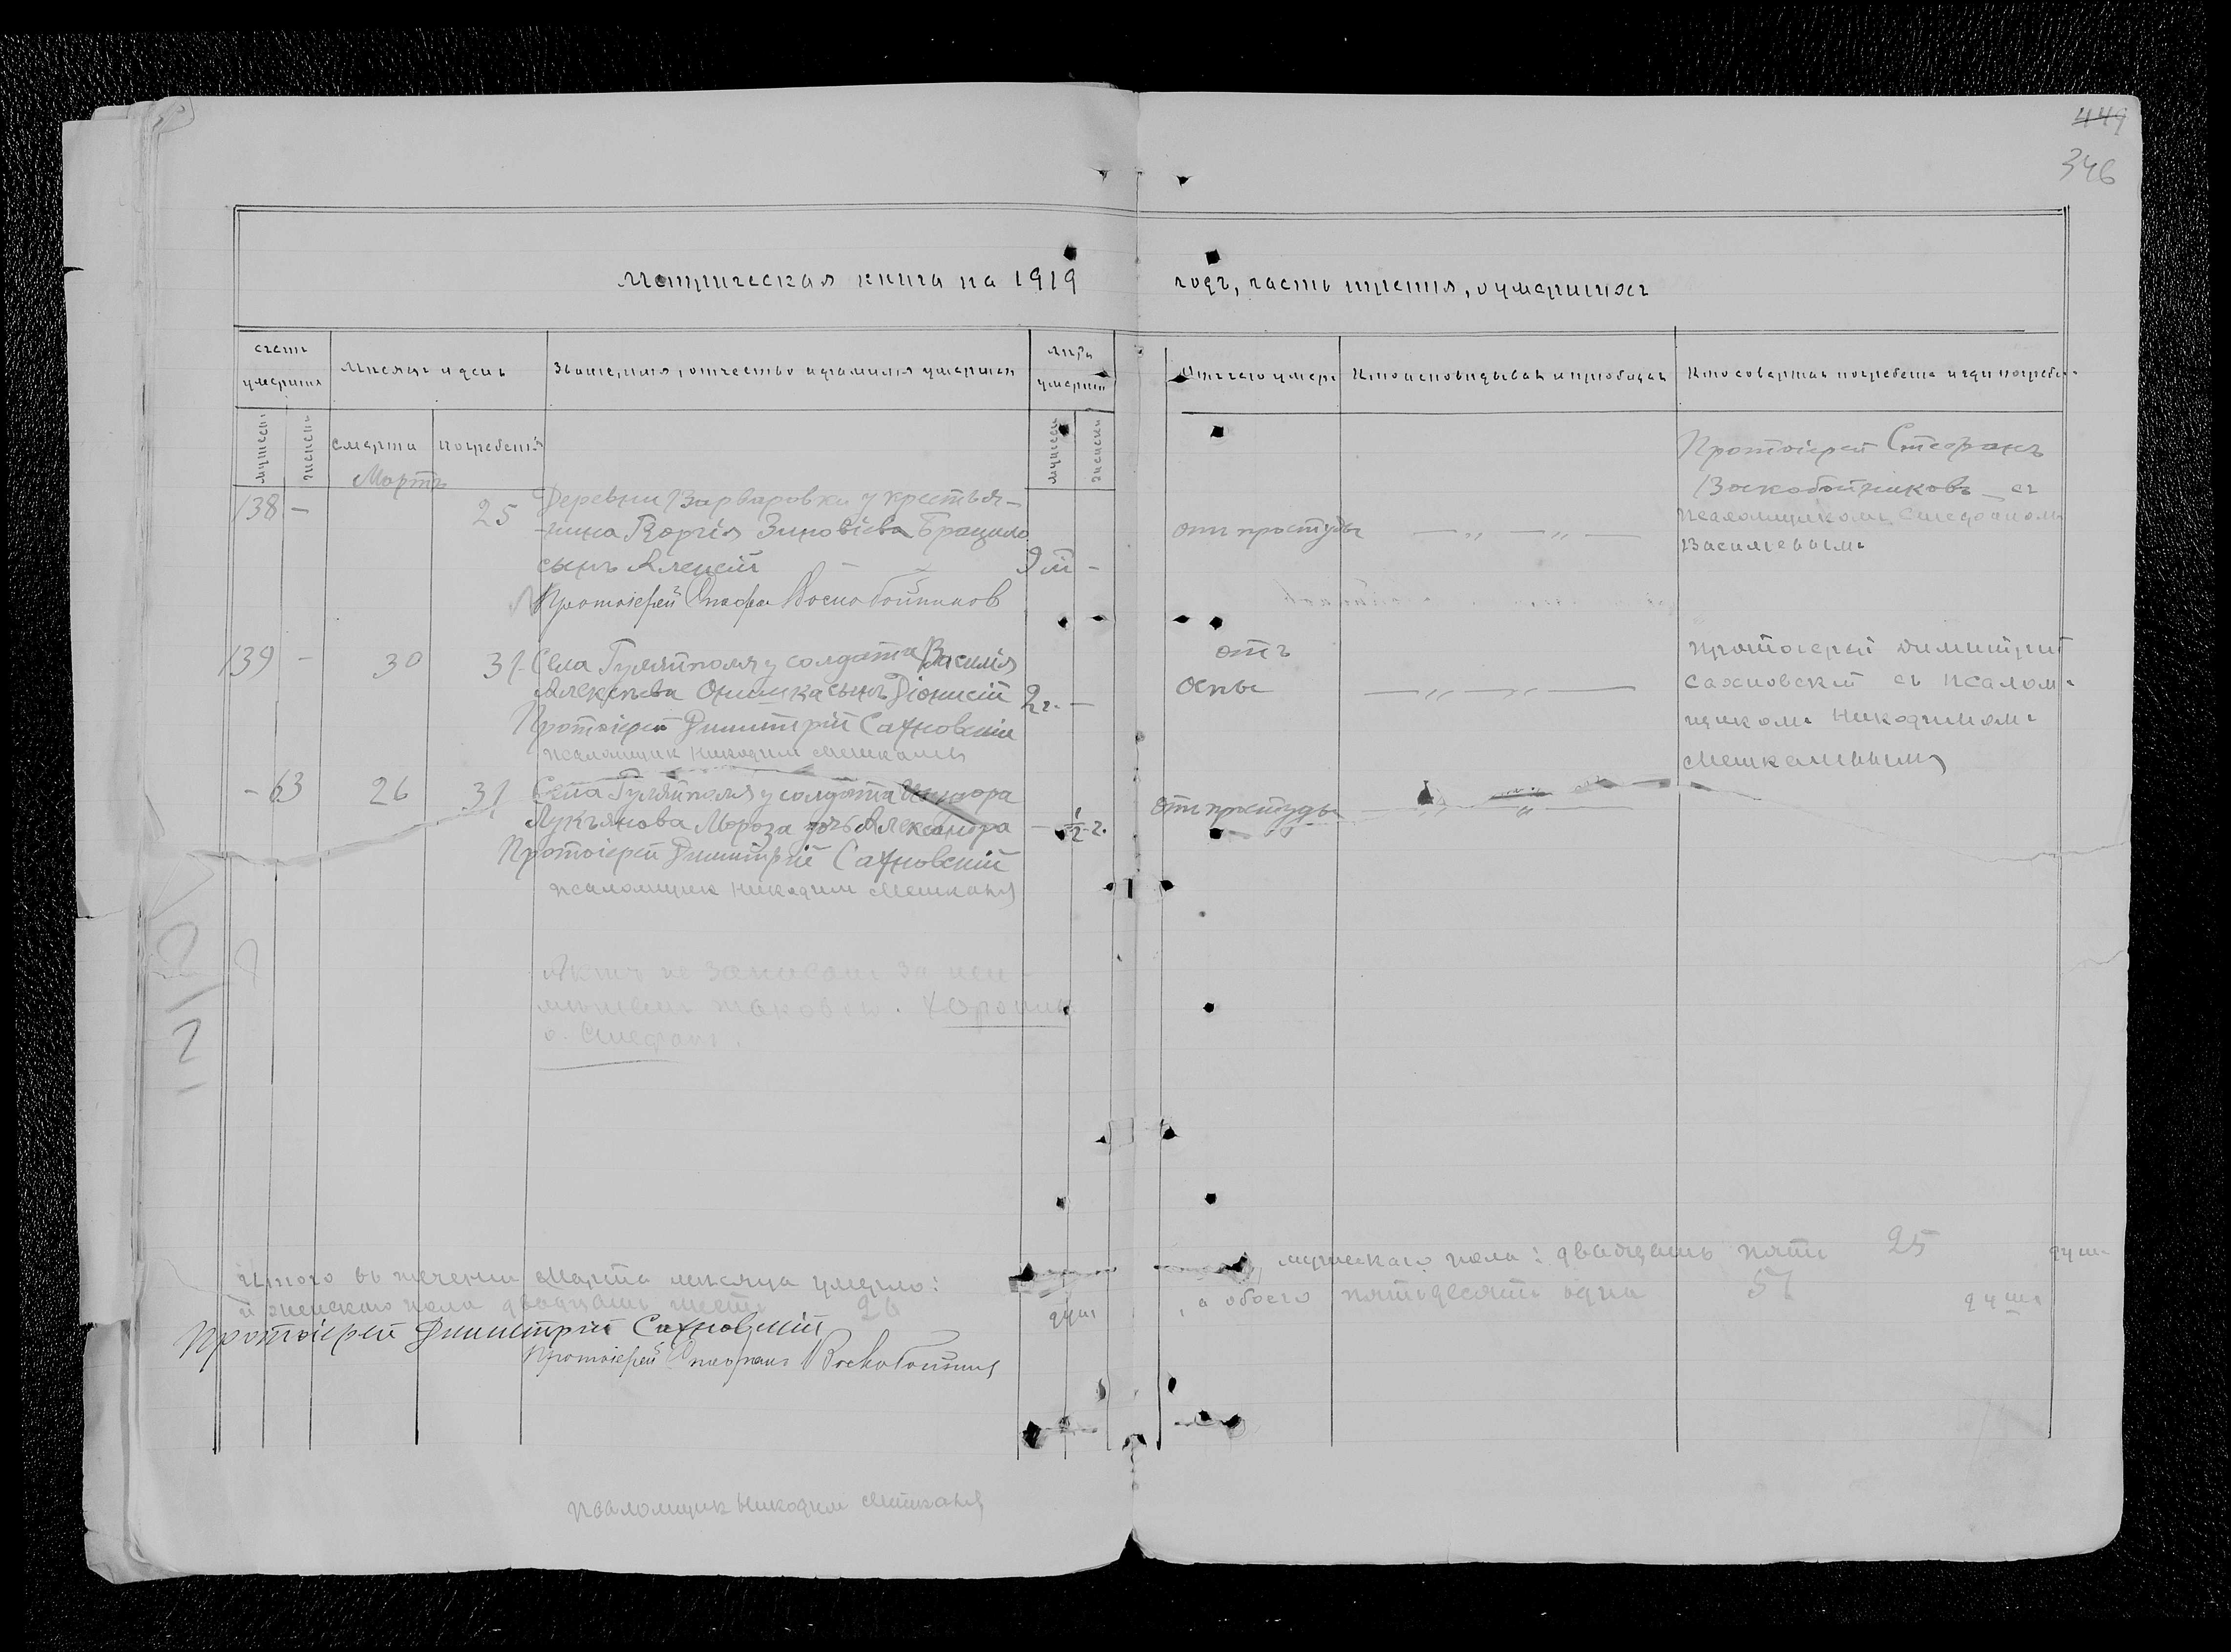 449
346
Метрическая книга на 1919
годъ, часть третья, о умершихъ
счетъ умершихъ
мѣсяцъ и день
Званіе, имя, отчество и фамилія умершаго
лѣта умершаго
Отчего умеръ
Кто исповѣдывалъ и пріобщалъ
Кто совершалъ погребеніе и гдѣ погребе-
мужеск
женск
смерти
погребенія
мужеск
женски
Мартъ
138 -
25
Деревни Варваровки у крестья-
-нина Георгія Зиновіева Брацило
сынъ Алексій
9 м -
Протоіерей Стефанъ Воскобойниковъ
отъ простуды
— „ — „ —
Протоіерей Стефанъ
Воскобойниковъ съ
псаломщикомъ Стефаномъ
Васильевымъ
139 -
30
31
Села Гуляйполя у солдата Василія
Алексѣева Онишка сынъ Діонисій
2 г. -
Протоіерей Димитрій Сахновскій
псаломщик Никодим Мешканъ
отъ
оспы
— „ — „ —
протоіерей Димитрій
Сахновскій съ псалом-
щикомъ Никодимомъ
- 63
26
31
Села Гуляйполя у солдата
Лукьянова Мороза дочь Александра
- 1/2 г.
Протоіерей Димитрій Сахновскій
псаломщик Никодим Мешканъ
отъ простуды
Актъ не записанъ за неи-
мѣніемъ таковаго. Хоронилъ
о. Стефанъ.
Итого въ теченіи Марта мѣсяца умерло:
мужескаго пола: двадцать пять 25 душъ
и женскаго пола двадцать шесть 26 душъ
, а обоего пятьдесятъ одна 51 душа
Протоіерей Димитрій Сахновскій
Протоіерей Стефанъ Воскобойник
псаломщик Никодим Мешканъ